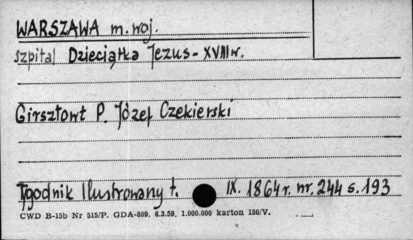 WARSZAWA m. woj.
Szpital Dzieciątka Jezus - XVIII w.
Girsztowt P. Józef Czekierski
Tygodnik Ilustrowany t. IX. 1864 r. nr. 244 s. 193
CWD B-15b Nr 515/P. GDA-809. 6.3.59. 1.000.000 karton 180/V.